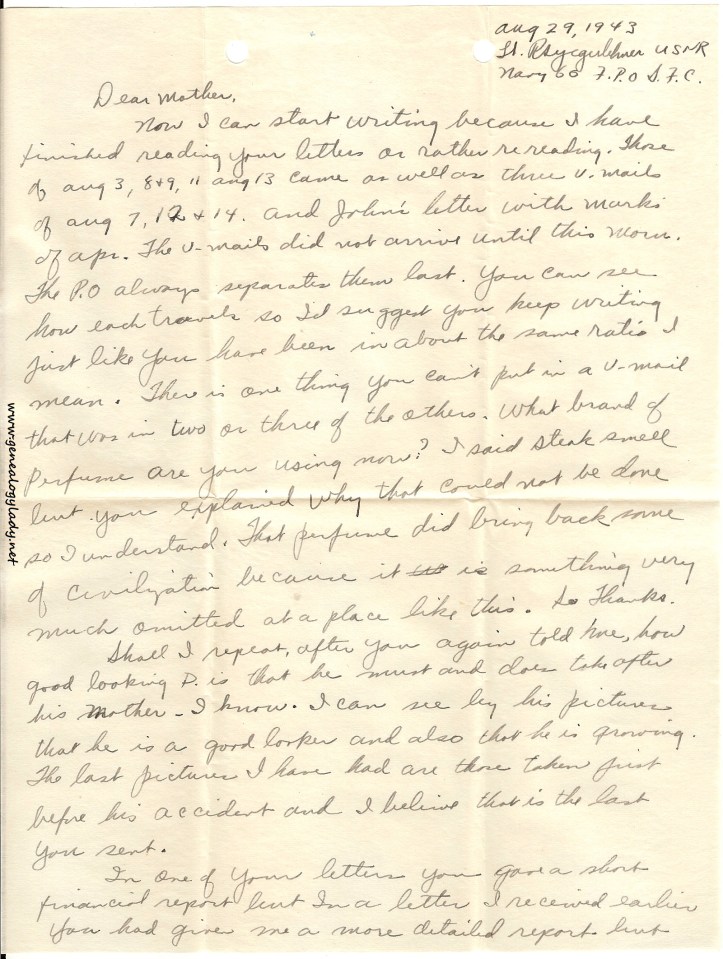 Aug 29, 1943
Lt. USNR
Navy 60 F.P.O S.F.C.
Dear Mother,
Now I can start writing because I have
finished reading your letters or rather rereading. Those
of Aug 3, 8+9, 11 Aug 13 came as well as three V-mails
of Aug 7, 12 + 14. And John's letter with marks
of Apr. The V-mails did not arrive until this morn.
The P.O always separates them last. You can see
how each travels so I'd suggest you keep writing
just like you have been in about the same ratio I
mean. There is one thing you can't put in a V-mail
that was in two or three of the others. What brand of
Perfume are you using now? I said steak smell
but you explained why that could not be done
so I understand. That perfume did bring back some
of civilization because it is something very
much omitted at a place like this. So Thanks.
Shall I repeat, after you again told me, how
good looking P. is that he must and does take after
his Mother - I know. I can see by his pictures
that he is a good looker and also that he is growing.
The last pictures I have had are those taken just
before his accident and I believe that is the last
you sent.
In one of your letters you gave a short
financial report but In a letter I received earlier
you had given me a more detailed report but
www.genealogylady.net